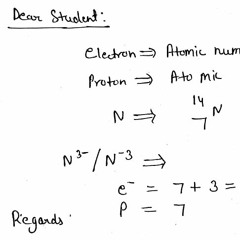 Dear Student:
Electron ⇒ Atomic num
Proton ⇒ Atomic
N ⇒ ¹⁴₇N
N³⁻/N⁻³ ⇒
e⁻ = 7 + 3 =
P = 7
Regards.